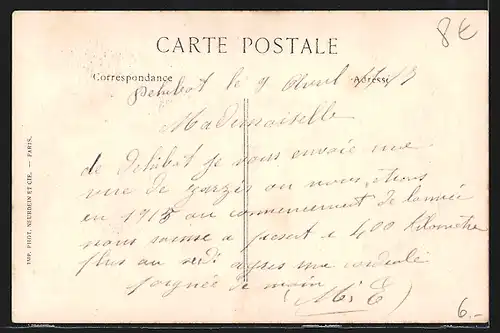 8€
CARTE POSTALE
Correspondance
Adresse
Dehibat le 9 Avril
Mademoiselle
de Dehibat je vous envoie une
vue de zarzis ou nous étions
en 1915 au commencement de l'année
nous somme a present a 400 kilometre
plus au sud apres une cordiale
poignée de main (M. E)
IMP. PHOT. NEURDEIN ET CIE. — PARIS.
6.-